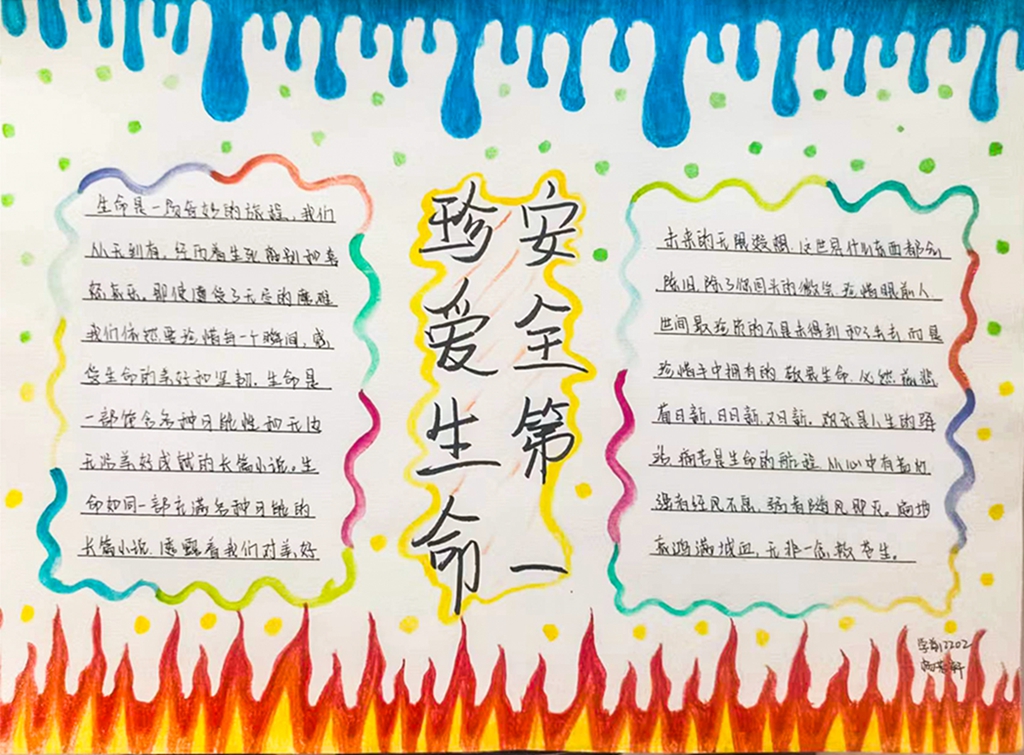 生命是一场奇妙的旅程、我们
从无到有，经历着生死离别和喜
怒哀乐。即使遭受了无尽的磨难
我们依然要珍惜每一个瞬间，感
受生命的美好和坚韧。生命是
一部饱含各种可能性和无边
无际美好成就的长篇小说。生
命如同一部充满各种可能的
长篇小说 透露着我们对美好
珍爱生命
安全第一
未来的无限遐想.这世界什么东西都会
陈旧.除了你回头的微笑.珍惜眼前人.
世间最珍贵的不是未得到和已失去 而是
珍惜手中拥有的 敬畏生命.必然
苟日新，日日新，又日新。欢乐是人生的驿
站 痛苦是生命的航程 从心中有
强者经风不息 弱者随风即灭。
哀鸿满城血 无非一念救苍生。
学前12202